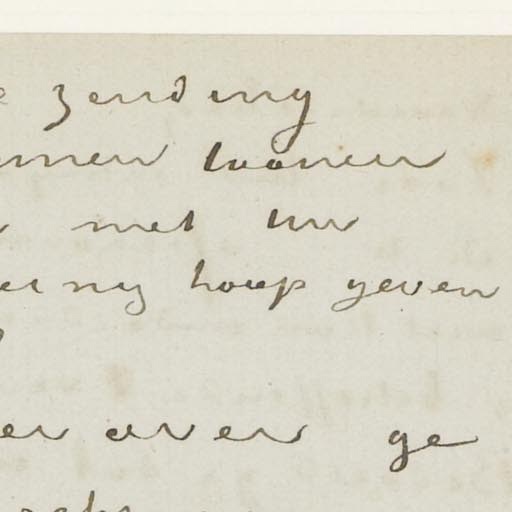 e zending
men toonen
met uw
et my hoop geven
er over ge